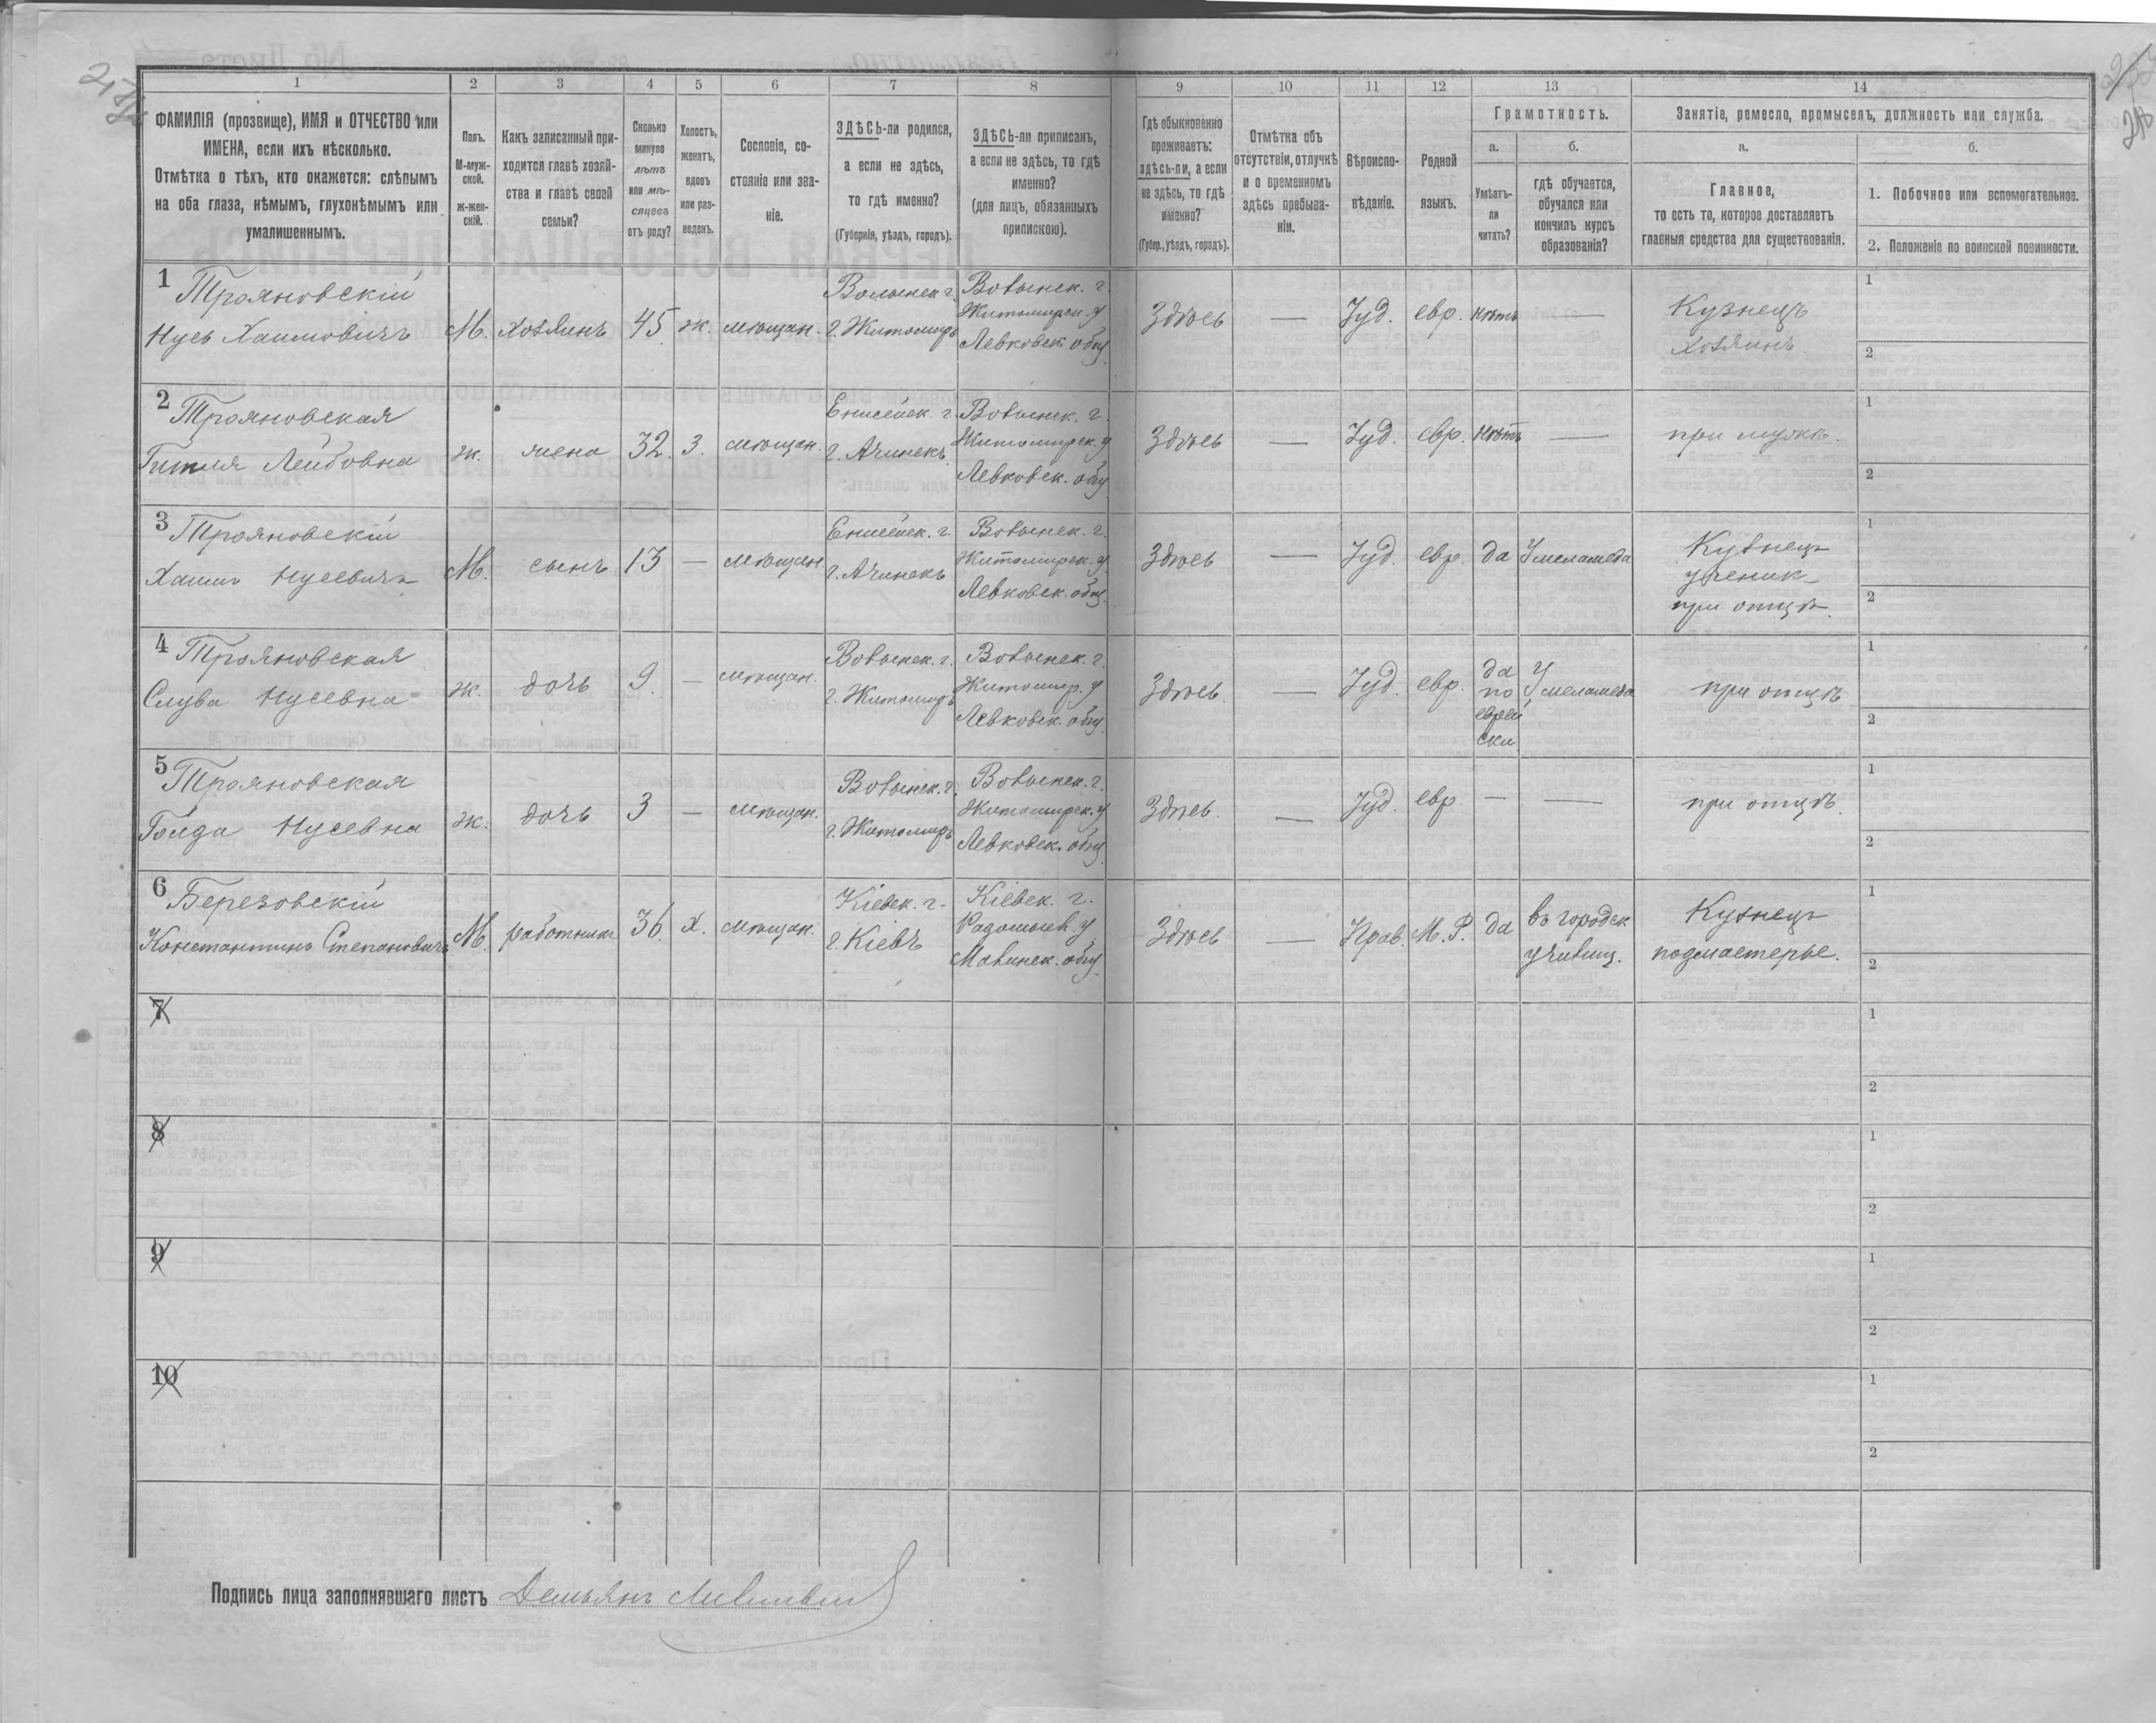 1 2 3 4 5 6 7 8 9 10 11 12 13 14
ФАМИЛІЯ (прозвище), ИМЯ и ОТЧЕСТВО или
ИМЕНА, если ихъ нѣсколько.
Отмѣтка о тѣхъ, кто окажется: слѣпымъ
на оба глаза, нѣмымъ, глухонѣмымъ или
умалишеннымъ.
Полъ.
М-муж-
ской.
ж-жен-
скій.
Какъ записанный при-
ходится главѣ хозяй-
ства и главѣ своей
семьи?
Сколько
минуло
лѣтъ
или мѣ-
сяцевъ
отъ роду?
Холостъ,
женатъ,
вдовъ
или раз-
веденъ.
Сословіе, со-
стояніе или зва-
ніе.
ЗДѢСЬ-ли родился,
а если не здѣсь,
то гдѣ именно?
(Губернія, уѣздъ, городъ).
ЗДѢСЬ-ли приписанъ,
а если не здѣсь, то гдѣ
именно?
(для лицъ, обязанныхъ
припискою).
Гдѣ обыкновенно
проживаетъ:
здѣсь-ли, а если
не здѣсь, то гдѣ
именно?
(Губер., уѣздъ, городъ).
Отмѣтка объ
отсутствіи, отлучкѣ
и о временномъ
здѣсь пребыва-
ніи.
Вѣроиспо-
вѣданіе.
Родной
языкъ.
Грамотность.
а.
Умѣетъ-
ли
читать?
б.
гдѣ обучается,
обучался или
кончилъ курсъ
образованія?
Занятіе, ремесло, промыселъ, должность или служба.
а.
Главное,
то есть то, которое доставляетъ
главныя средства для существованія.
б.
1. Побочное или вспомогательное.
2. Положеніе по воинской повинности.
1
Трояновскій
Нусь Хаимовичъ
М.
хозяинъ
45
ж.
мѣщан.
Волынск г.
г. Житомиръ
Волынск. г.
Житомирск. у
Левковск общ
Здѣсь
—
Іуд.
евр.
нѣтъ
—
Кузнецъ
хозяинъ
1
2
2
Трояновская
Гитля Лейбовна
ж.
жена
32.
з.
мѣщан.
Енисейск. г.
г. Ачинскъ
Волынск. г.
Житомирск. у
Левковск. общ
Здѣсь
—
Іуд.
евр.
нѣтъ
—
при мужѣ.
1
2
3
Трояновскій
Хаимъ Нусевичъ
М.
сынъ
13
—
мѣщан
Енисейск. г.
г. Ачинскъ
Волынск. г.
Житомирск. у
Левковск. общ.
Здѣсь
—
Іуд.
евр.
да
У меламеда
Кузнецъ
ученик
при отцѣ.
1
2
4
Трояновская
Слува Нусевна
ж.
дочь
9.
—
мѣщан.
Волынск. г.
г. Житомиръ
Волынск. г.
Житомир. у
Левковск. общ
Здѣсь.
—
Іуд.
евр.
да
по
еврей
ски.
У
меламеда
при отцѣ
1
2
5
Трояновская
Нусевна
ж.
дочь
3
—
мѣщан.
Волынск. г.
г. Житомиръ
Волынск. г.
Житомирск. у
Левковск. общ
Здѣсь.
—
Іуд.
евр.
—
—
при отцѣ.
1
2
6
Березовскій
Константинъ Степановичъ
М.
работник
36.
х.
мѣщан.
Кіевск. г.
г. Кіевъ
Кіевск. г.
Радомысл у
Малинск. общ.
Здѣсь
—
Прав.
М. Р.
да
въ городск
училищ.
Кузнецъ
подмастерье.
1
2
7
1
2
8
1
2
9
1
2
10
1
2
Подпись лица заполнявшаго листъ Демьянъ